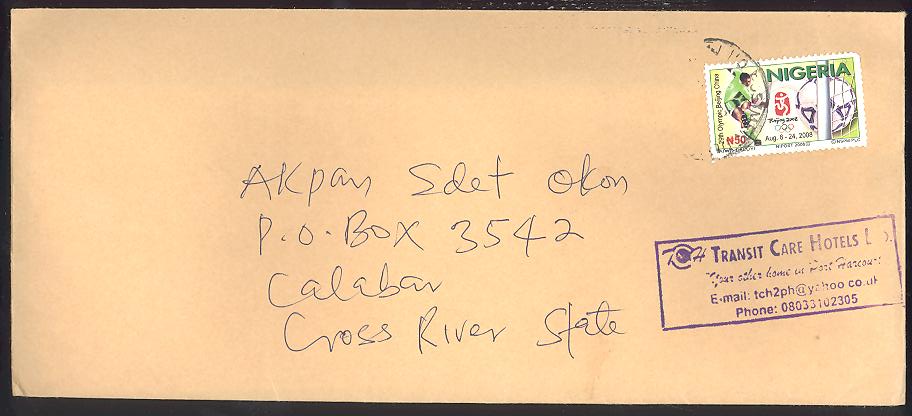 NIGERIA
29th Olympic Beijing China
Beijing 2008
Aug. 8 - 24, 2008
₦50
Akpan Sdet Okon
P.O. Box 3542
Calabar
Cross River State
TCH TRANSIT CARE HOTELS L
Your other home in Port Harcourt
E-mail: tch2ph@yahoo co.uk
Phone: 08033102305